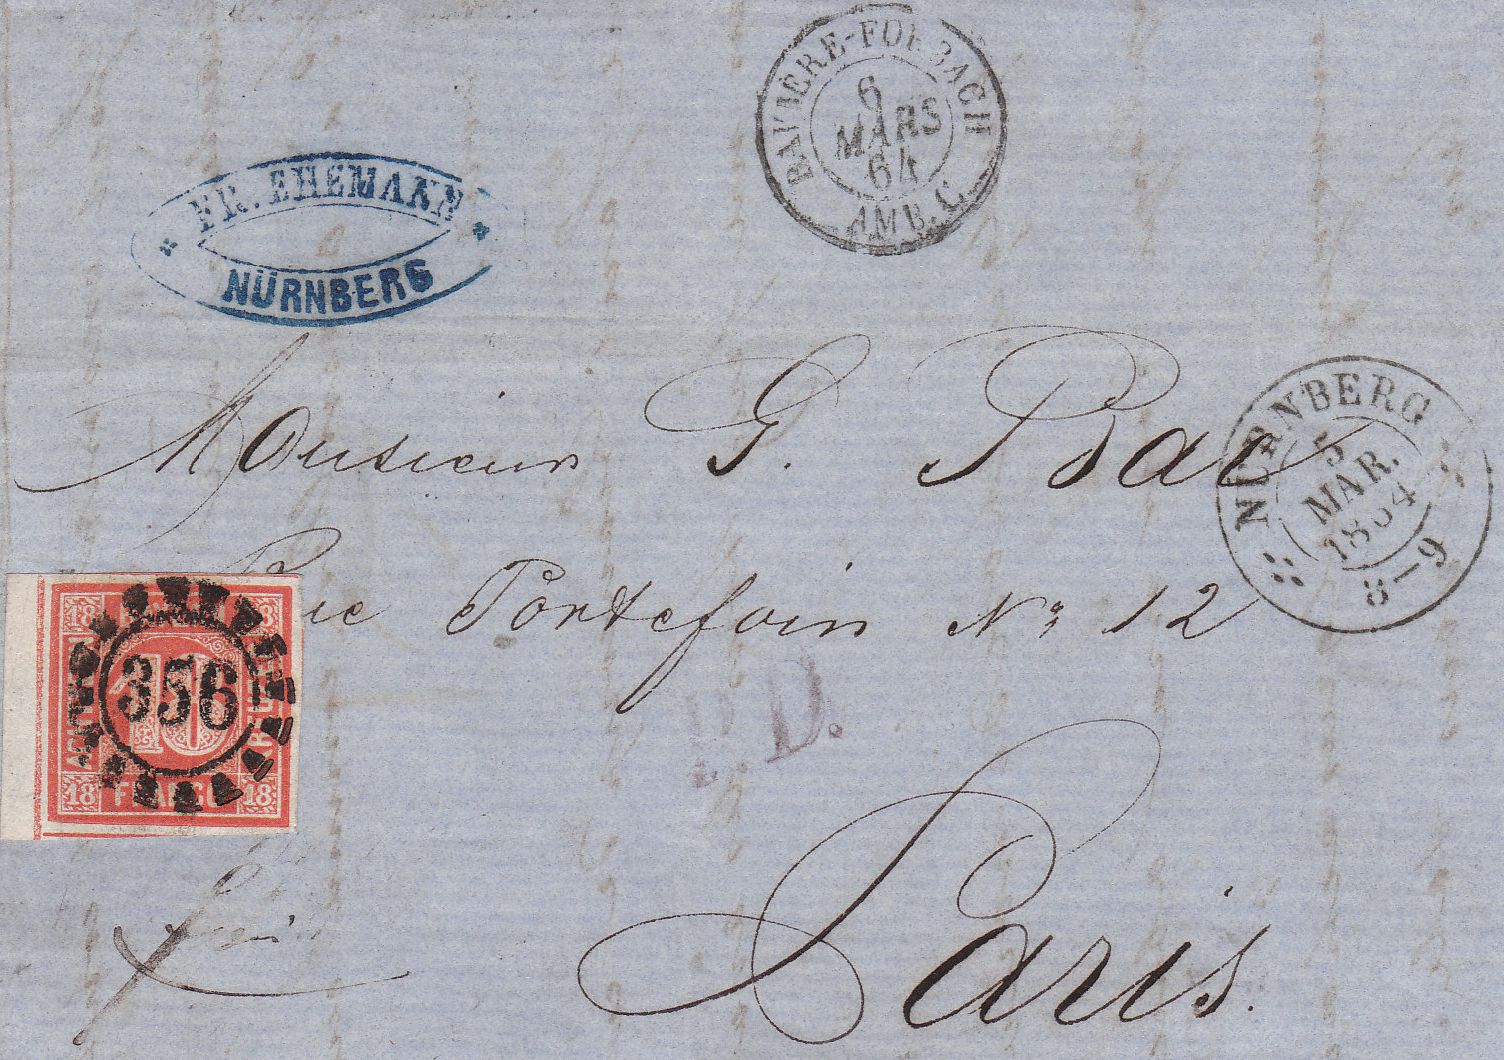 BAVIERE-FORBACH
6
MARS
64
AMB. C
FR. EHEMANN
NÜRNBERG
Monsieur G. Bac
NÜRNBERG
5
MAR.
1864
8-9
Rue Portefoin No 12
P.D.
18 18
356
18 FRANCO 18
Paris.